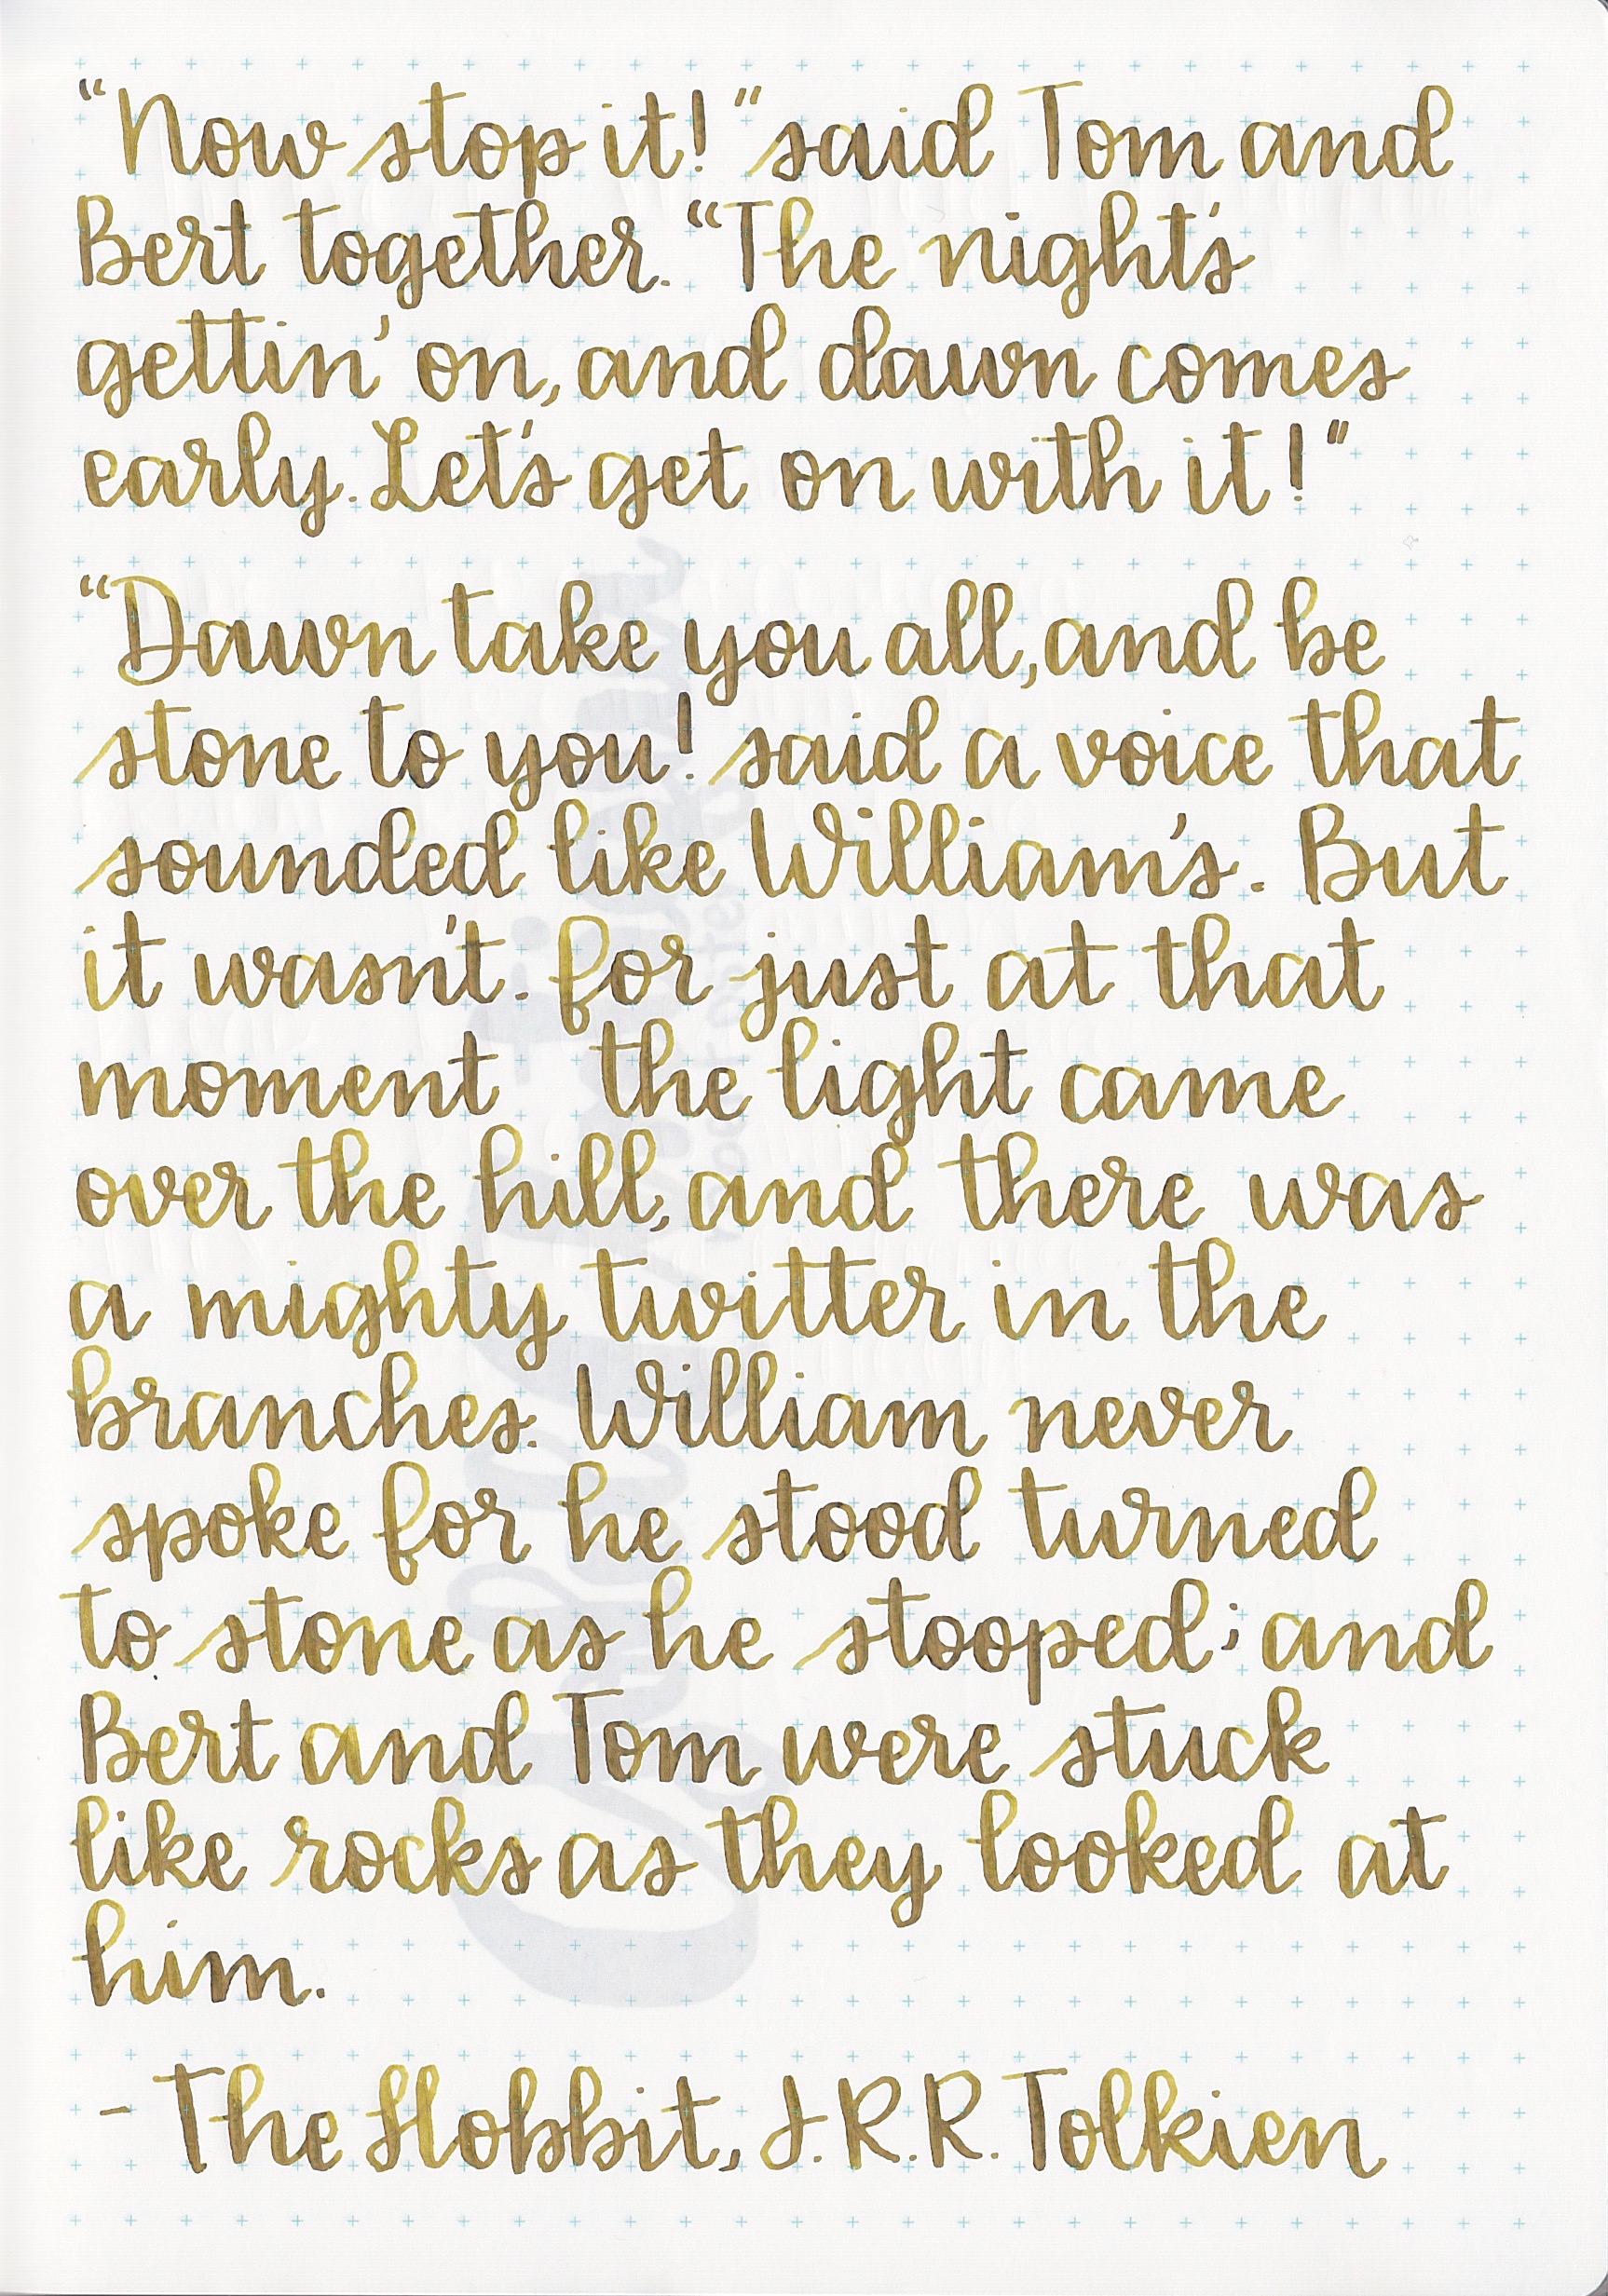 "Now stop it!" said Tom and
Bert together. "The night's
gettin' on, and dawn comes
early. Let's get on with it!"
"Dawn take you all, and be
stone to you! said a voice that
sounded like William's. But
it wasn't. for just at that
moment the light came
over the hill, and there was
a mighty twitter in the
branches. William never
spoke for he stood turned
to stone as he stooped; and
Bert and Tom were stuck
like rocks as they looked at
him.
- The Hobbit, J.R.R. Tolkien